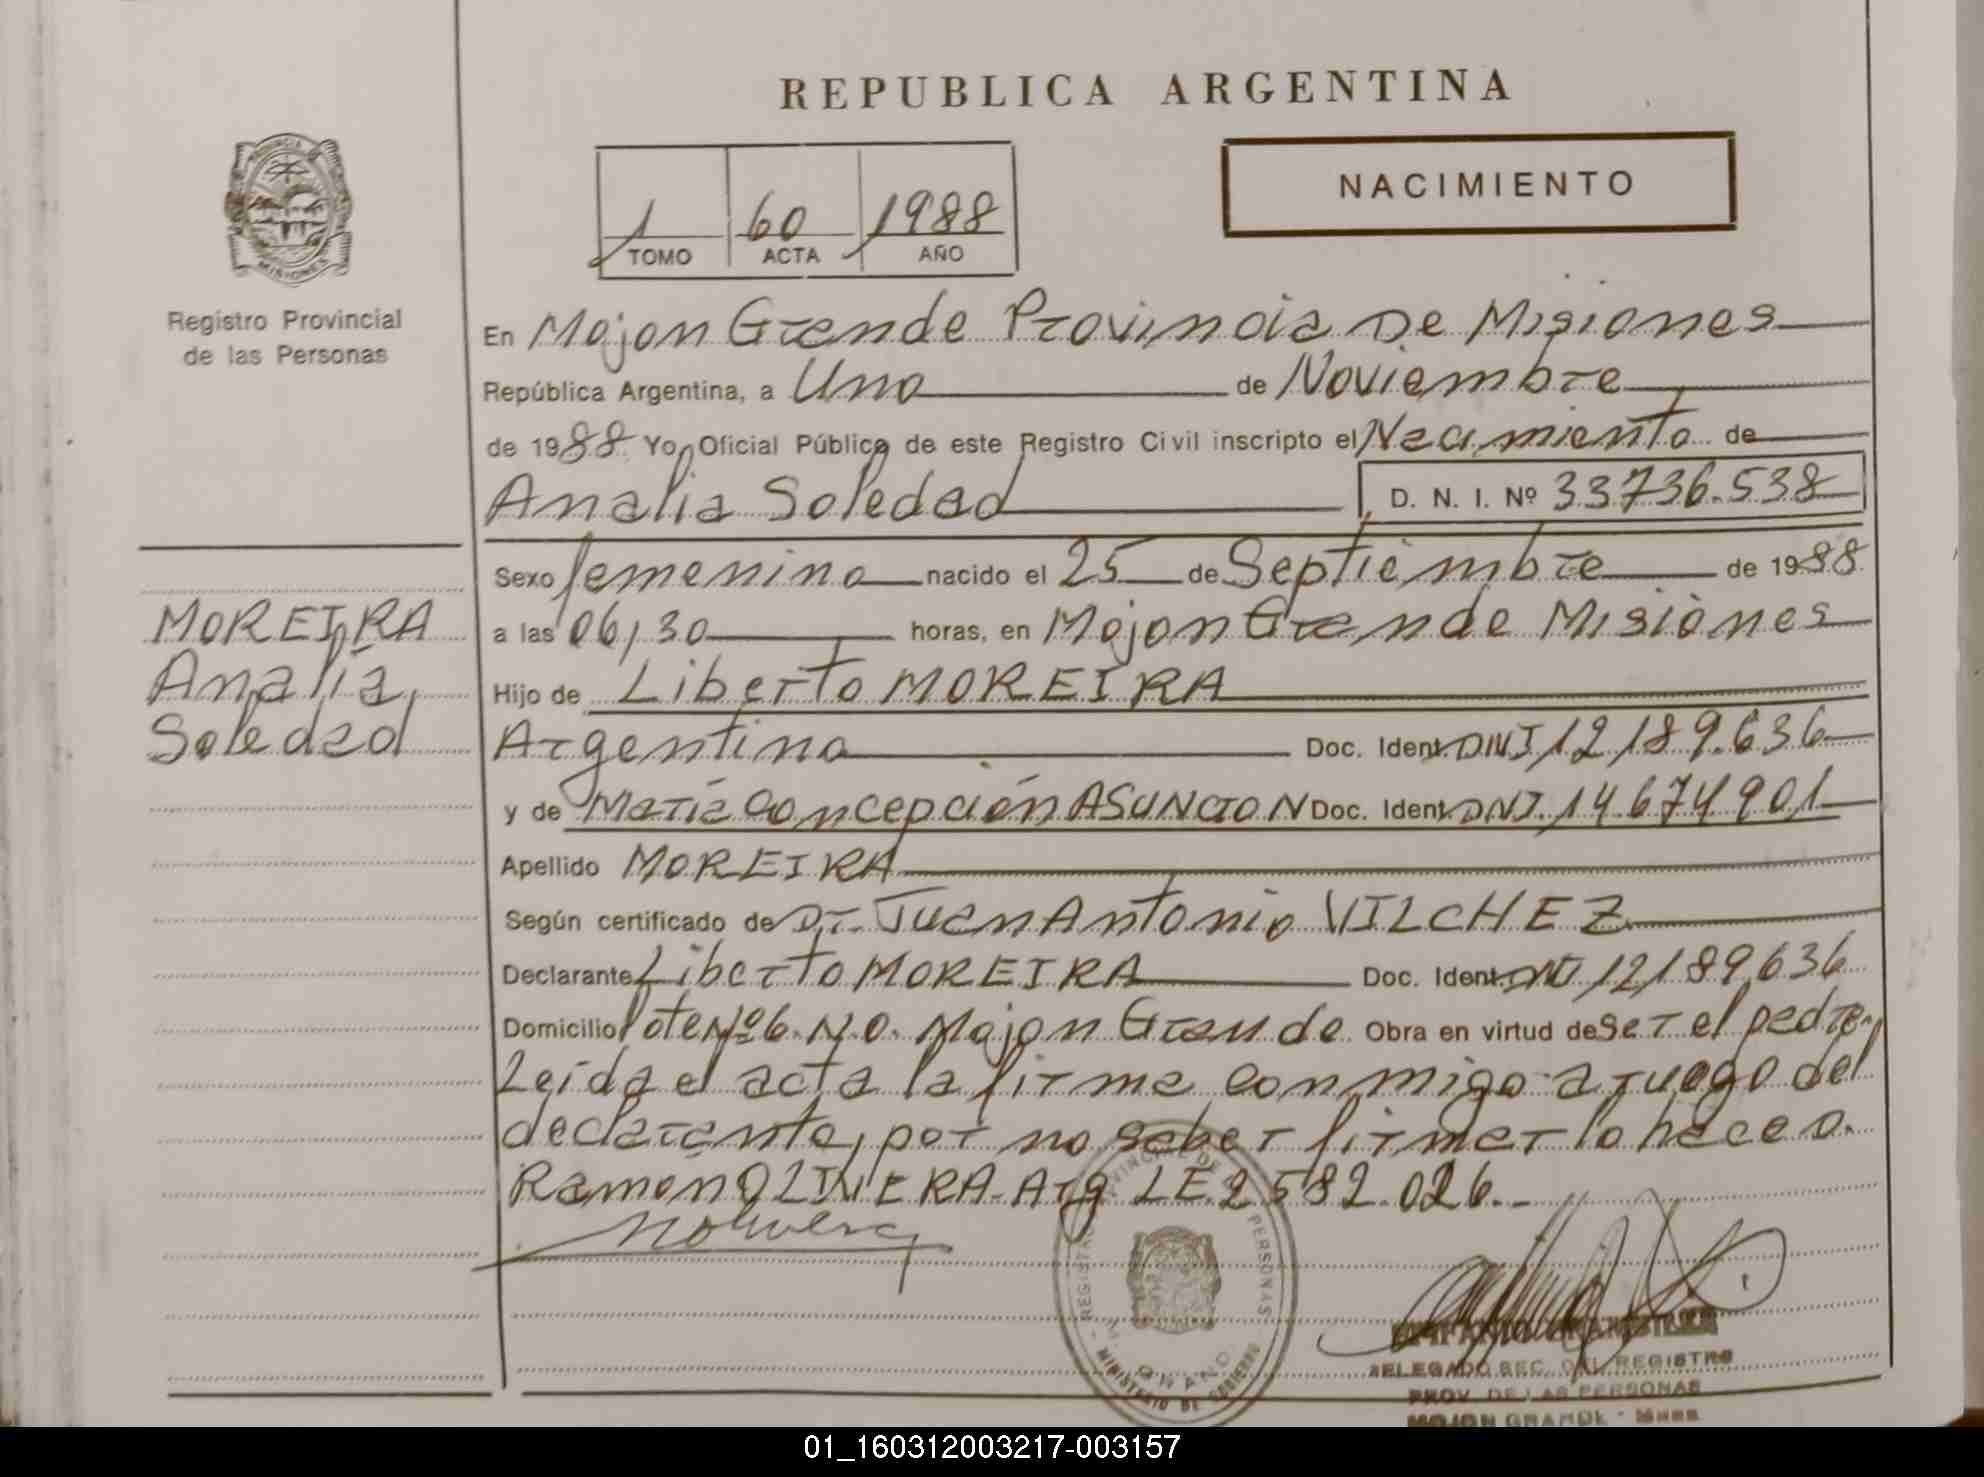 REPUBLICA ARGENTINA
NACIMIENTO
1 60 1988
TOMO ACTA AÑO
PROVINCIA DE
MISIONES
Registro Provincial
de las Personas
En Mojon Grande Provincia De Misiones
República Argentina, a Uno de Noviembre
de 1988 Yo, Oficial Público de este Registro Civil inscripto el Nacimiento de
Analia Soledad D. N. I. Nº 33736.538
Sexo femenino nacido el 25 de Septiembre de 1988
MOREIRA
Analia
Soledad
a las 06,30 horas, en Mojon Grande Misiones
Hijo de Liberto MOREIRA
Argentino Doc. Ident. DNI 12189.636
y de Maria Concepción ASUNCION Doc. Ident. DNI. 14674901
Apellido MOREIRA
Según certificado de Dr. Juan Antonio VILCHEZ
Declarante Liberto MOREIRA Doc. Ident. DNI 12189636
Domicilio lote Nº 6. N.O. Mojon Grande. Obra en virtud de Ser el padre,
Leida el acta la firma conmigo a ruego del
declarante, por no saber firmar lo hace D.
Ramón OLIVERA. Arg LE 2582.026.-
REGISTRO PROVINCIAL DE PERSONAS
MINISTERIO DE GOBIERNO
DELEGADO SEC. DEL REGISTRO
PROV. DE LAS PERSONAS
MOJON GRANDE - Mnes
01_160312003217-003157